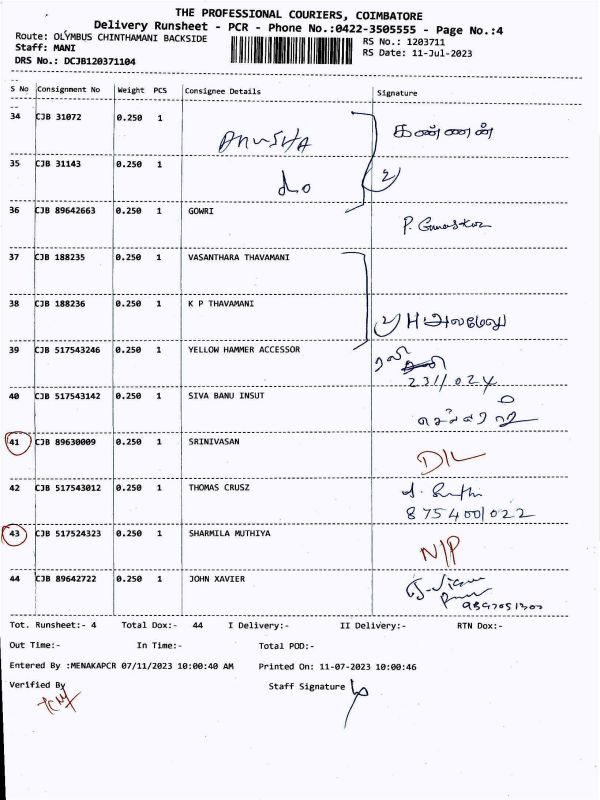 THE PROFESSIONAL COURIERS, COIMBATORE
Delivery Runsheet - PCR - Phone No.:0422-3505555 - Page No.:4
Route: OLYMBUS CHINTHAMANI BACKSIDE
RS No.: 1203711
Staff: MANI
RS Date: 11-Jul-2023
DRS No.: DCJB120371104
S No Consignment No Weight PCS Consignee Details Signature
34 CJB 31072 0.250 1 ANUSHA கண்ணன்
35 CJB 31143 0.250 1 do 2
36 CJB 89642663 0.250 1 GOWRI
37 CJB 188235 0.250 1 VASANTHARA THAVAMANI
38 CJB 188236 0.250 1 K P THAVAMANI 2 H அலமேலு
39 CJB 517543246 0.250 1 YELLOW HAMMER ACCESSOR ரவி
40 CJB 517543142 0.250 1 SIVA BANU INSUT
41 CJB 89630009 0.250 1 SRINIVASAN D/L
42 CJB 517543012 0.250 1 THOMAS CRUSZ
8754001022
43 CJB 517524323 0.250 1 SHARMILA MUTHIYA N/P
44 CJB 89642722 0.250 1 JOHN XAVIER
Tot. Runsheet:- 4 Total Dox:- 44 I Delivery:- II Delivery:- RTN Dox:-
Out Time:- In Time:- Total POD:-
Entered By :MENAKAPCR 07/11/2023 10:00:40 AM Printed On: 11-07-2023 10:00:46
Verified By Staff Signature